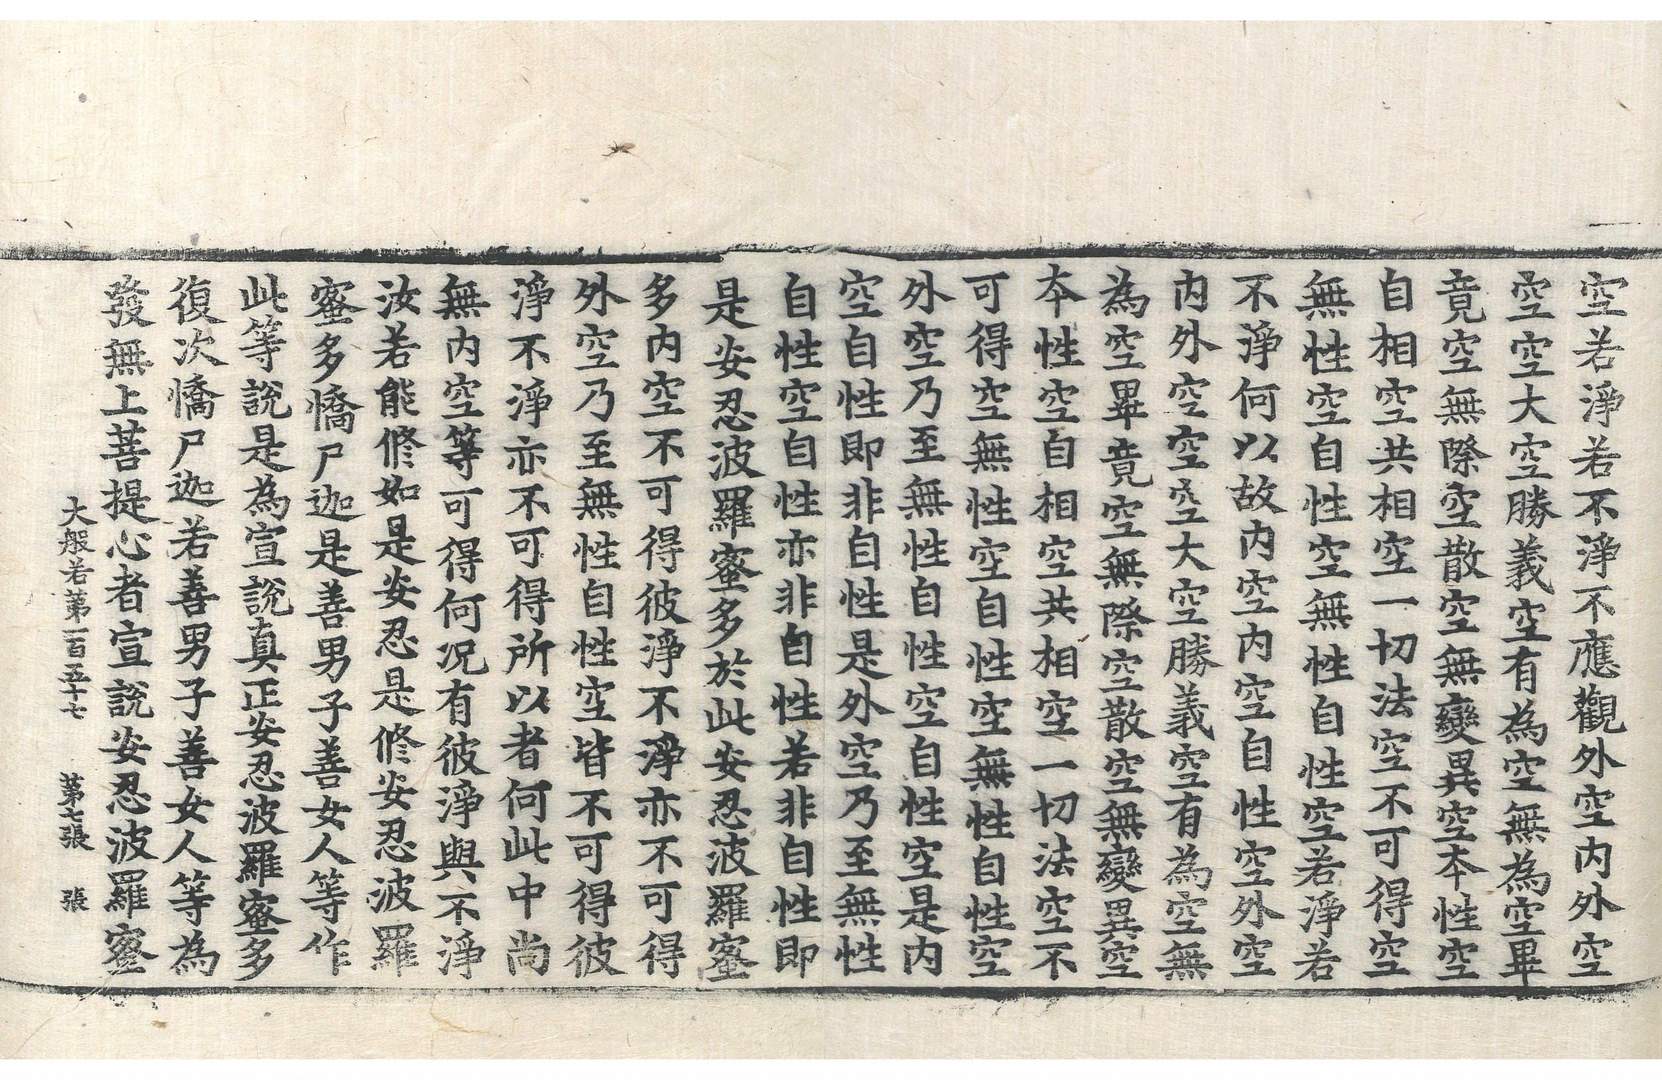 空若淨若不淨不應觀外空內外空
空空大空勝義空有為空無為空畢
竟空無際空散空無變異空本性空
自相空共相空一切法空不可得空
無性空自性空無性自性空若淨若
不淨何以故內空內空自性空外空
內外空空空大空勝義空有為空無
為空畢竟空無際空散空無變異空
本性空自相空共相空一切法空不
可得空無性空自性空無性自性空
外空乃至無性自性空自性空是內
空自性即非自性是外空乃至無性
自性空自性亦非自性若非自性即
是安忍波羅蜜多於此安忍波羅蜜
多內空不可得彼淨不淨亦不可得
外空乃至無性自性空皆不可得彼
淨不淨亦不可得所以者何此中尚
無內空等可得何況有彼淨與不淨
汝若能修如是安忍是修安忍波羅
蜜多憍尸迦是善男子善女人等作
此等說是為宣說真正安忍波羅蜜多
復次憍尸迦若善男子善女人等為
發無上菩提心者宣說安忍波羅蜜
大般若第一百五十七 第七張 張